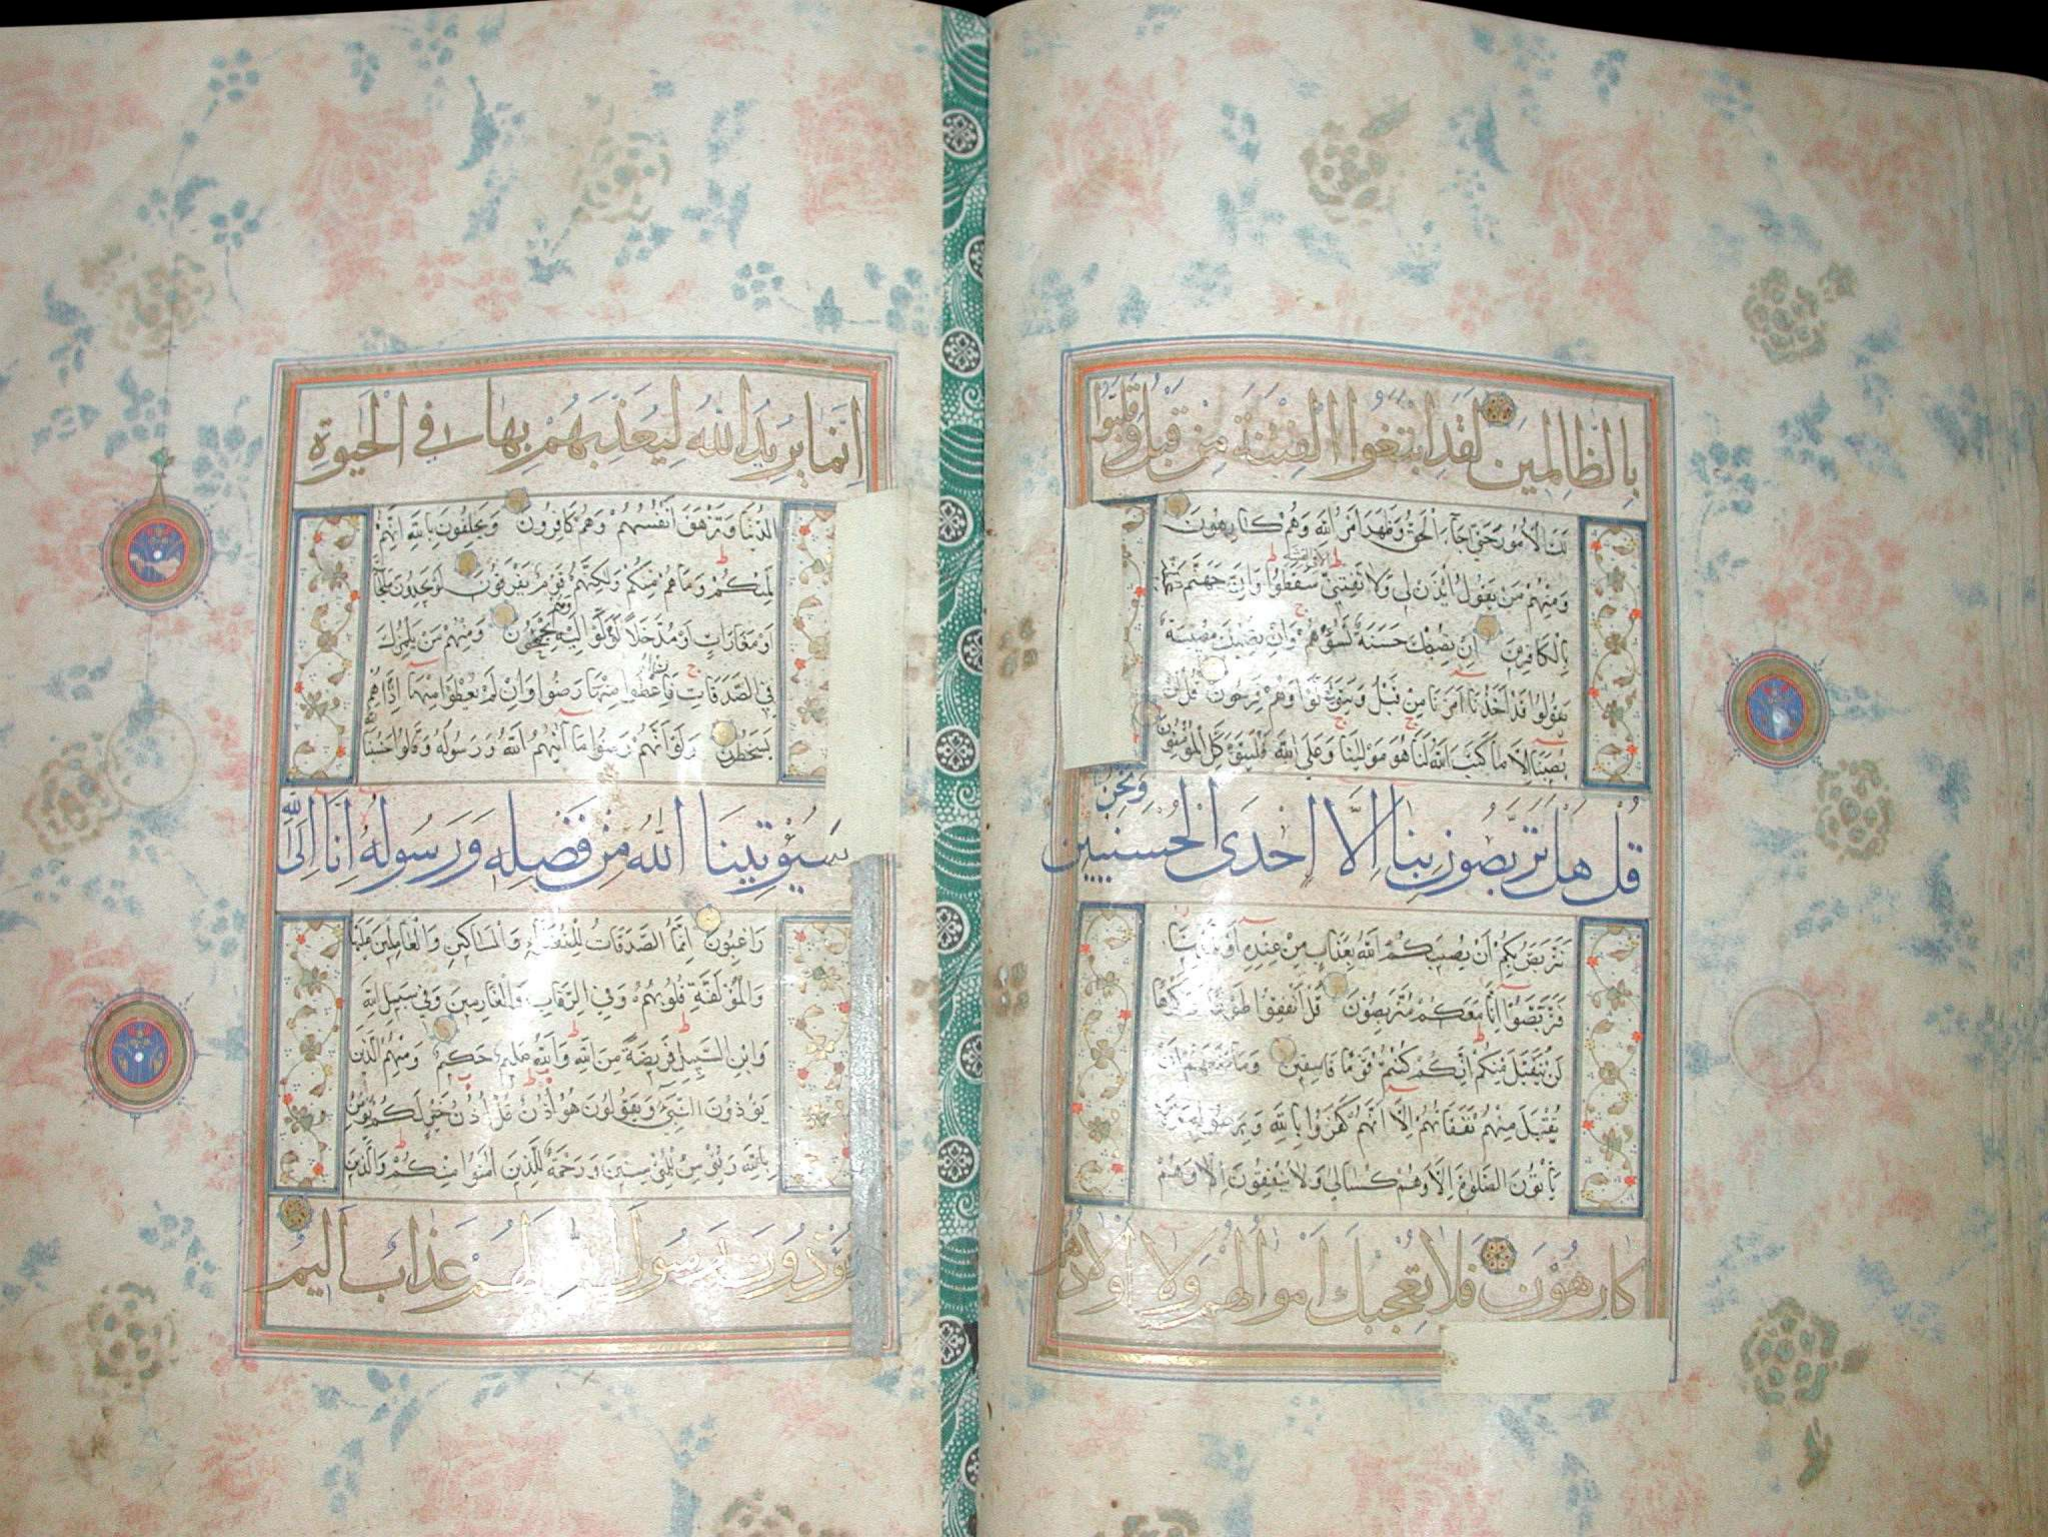 بِالظَّالِمِينَ لَقَدِ ابْتَغَوُا الْفِتْنَةَ مِنْ قَبْلُ وَقَلَّبُوا
لَكَ الْأُمُورَ حَتَّى جَاءَ الْحَقُّ وَظَهَرَ أَمْرُ اللَّهِ وَهُمْ كَارِهُونَ
وَمِنْهُمْ مَنْ يَقُولُ ائْذَنْ لِي وَلَا تَفْتِنِّي سَقَطُوا وَإِنَّ جَهَنَّمَ
بِالْكَافِرِينَ إِنْ تُصِبْكَ حَسَنَةٌ تَسُؤْهُمْ وَإِنْ تُصِبْكَ مُصِيبَةٌ
يَقُولُوا قَدْ أَخَذْنَا أَمْرَنَا مِنْ قَبْلُ وَيَتَوَلَّوْا وَهُمْ فَرِحُونَ قُلْ لَنْ
يُصِيبَنَا إِلَّا مَا كَتَبَ اللَّهُ لَنَا هُوَ مَوْلَانَا وَعَلَى اللَّهِ فَلْيَتَوَكَّلِ الْمُؤْمِنُونَ
قُلْ هَلْ تَرَبَّصُونَ بِنَا إِلَّا إِحْدَى الْحُسْنَيَيْنِ وَنَحْنُ
نَتَرَبَّصُ بِكُمْ أَنْ يُصِيبَكُمُ اللَّهُ بِعَذَابٍ مِنْ عِنْدِهِ أَوْ بِأَيْدِينَا
فَتَرَبَّصُوا إِنَّا مَعَكُمْ مُتَرَبِّصُونَ قُلْ أَنْفِقُوا طَوْعًا أَوْ كَرْهًا
لَنْ يُتَقَبَّلَ مِنْكُمْ إِنَّكُمْ كُنْتُمْ قَوْمًا فَاسِقِينَ وَمَا مَنَعَهُمْ أَنْ
تُقْبَلَ مِنْهُمْ نَفَقَاتُهُمْ إِلَّا أَنَّهُمْ كَفَرُوا بِاللَّهِ وَبِرَسُولِهِ وَلَا
يَأْتُونَ الصَّلَوةَ إِلَّا وَهُمْ كُسَالَى وَلَا يُنْفِقُونَ إِلَّا وَهُمْ
كَارِهُونَ فَلَا تُعْجِبْكَ أَمْوَالُهُمْ وَلَا أَوْلَادُهُمْ
إِنَّمَا يُرِيدُ اللَّهُ لِيُعَذِّبَهُمْ بِهَا فِي الْحَيَوةِ
الدُّنْيَا وَتَزْهَقَ أَنْفُسُهُمْ وَهُمْ كَافِرُونَ وَيَحْلِفُونَ بِاللَّهِ إِنَّهُمْ
لَمِنْكُمْ وَمَا هُمْ مِنْكُمْ وَلَكِنَّهُمْ قَوْمٌ يَفْرَقُونَ لَوْ يَجِدُونَ مَلْجَأً
أَوْ مَغَارَاتٍ أَوْ مُدَّخَلًا لَوَلَّوْا إِلَيْهِ وَهُمْ يَجْمَحُونَ وَمِنْهُمْ مَنْ يَلْمِزُكَ
فِي الصَّدَقَاتِ فَإِنْ أُعْطُوا مِنْهَا رَضُوا وَإِنْ لَمْ يُعْطَوْا مِنْهَا إِذَا هُمْ
يَسْخَطُونَ وَلَوْ أَنَّهُمْ رَضُوا مَا آتَيهُمُ اللَّهُ وَرَسُولُهُ وَقَالُوا حَسْبُنَا
سَيُؤْتِينَا اللَّهُ مِنْ فَضْلِهِ وَرَسُولُهُ إِنَّا إِلَى اللَّهِ
رَاغِبُونَ إِنَّمَا الصَّدَقَاتُ لِلْفُقَرَاءِ وَالْمَسَاكِينِ وَالْعَامِلِينَ عَلَيْهَا
وَالْمُؤَلَّفَةِ قُلُوبُهُمْ وَفِي الرِّقَابِ وَالْغَارِمِينَ وَفِي سَبِيلِ اللَّهِ
وَابْنِ السَّبِيلِ فَرِيضَةً مِنَ اللَّهِ وَاللَّهُ عَلِيمٌ حَكِيمٌ وَمِنْهُمُ الَّذِينَ
يُؤْذُونَ النَّبِيَّ وَيَقُولُونَ هُوَ أُذُنٌ قُلْ أُذُنُ خَيْرٍ لَكُمْ يُؤْمِنُ
بِاللَّهِ وَيُؤْمِنُ لِلْمُؤْمِنِينَ وَرَحْمَةٌ لِلَّذِينَ آمَنُوا مِنْكُمْ وَالَّذِينَ
يُؤْذُونَ رَسُولَ اللَّهِ لَهُمْ عَذَابٌ أَلِيمٌ